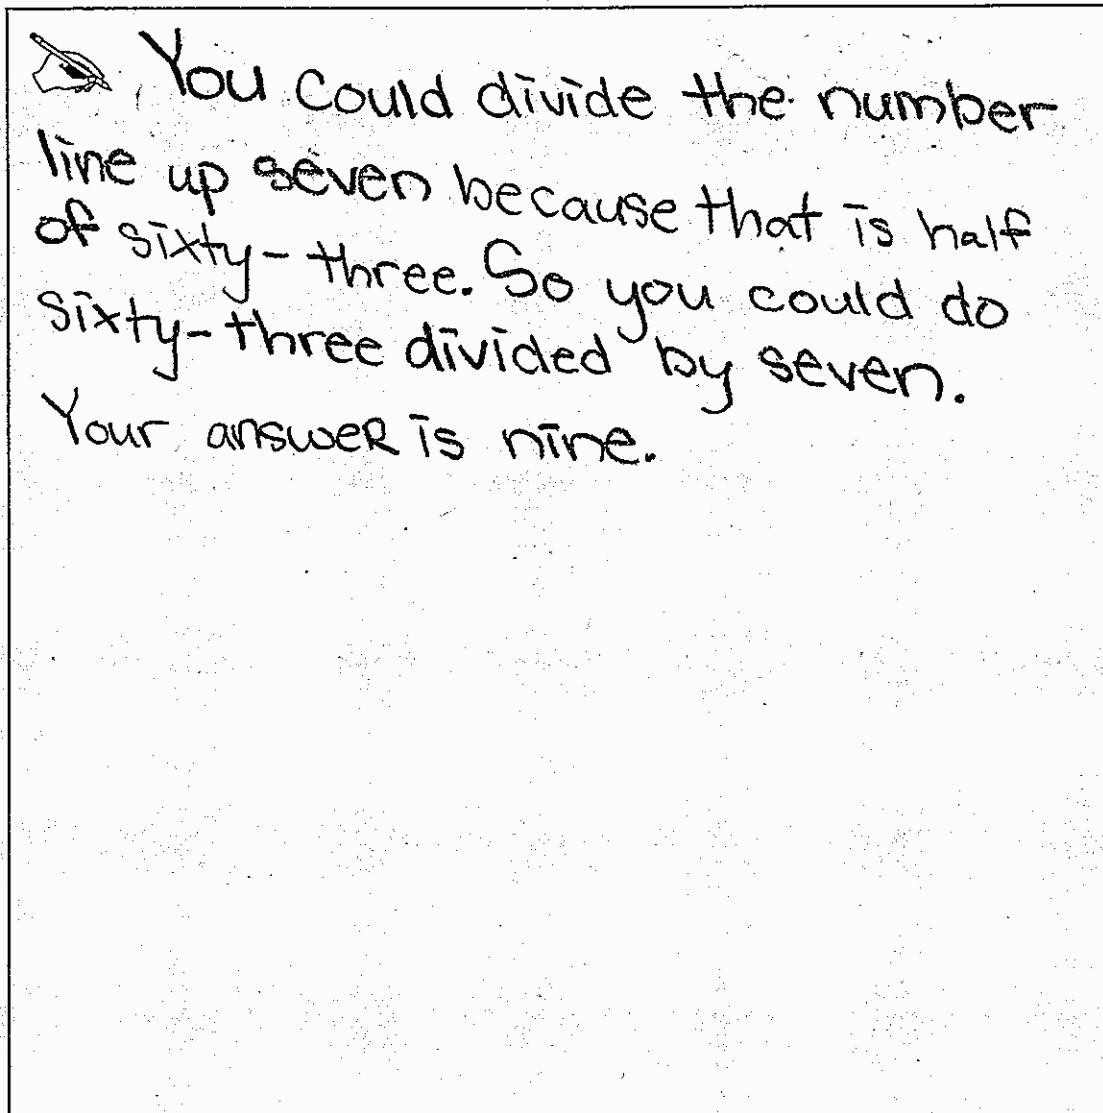 You could divide the number
line up seven because that is half
of sixty-three. So you could do
sixty-three divided by seven.
Your answer is nine.